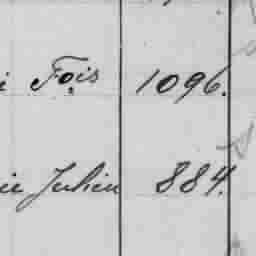 Fois 1096.
Julien 884.